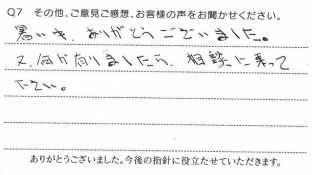 Q7 その他、ご意見ご感想、お客様の声をお聞かせください。
暑い中、ありがとうございました。
又、何か有りましたら、相談に乗って
下さい。
ありがとうございました。今後の指針に役立たせていただきます。